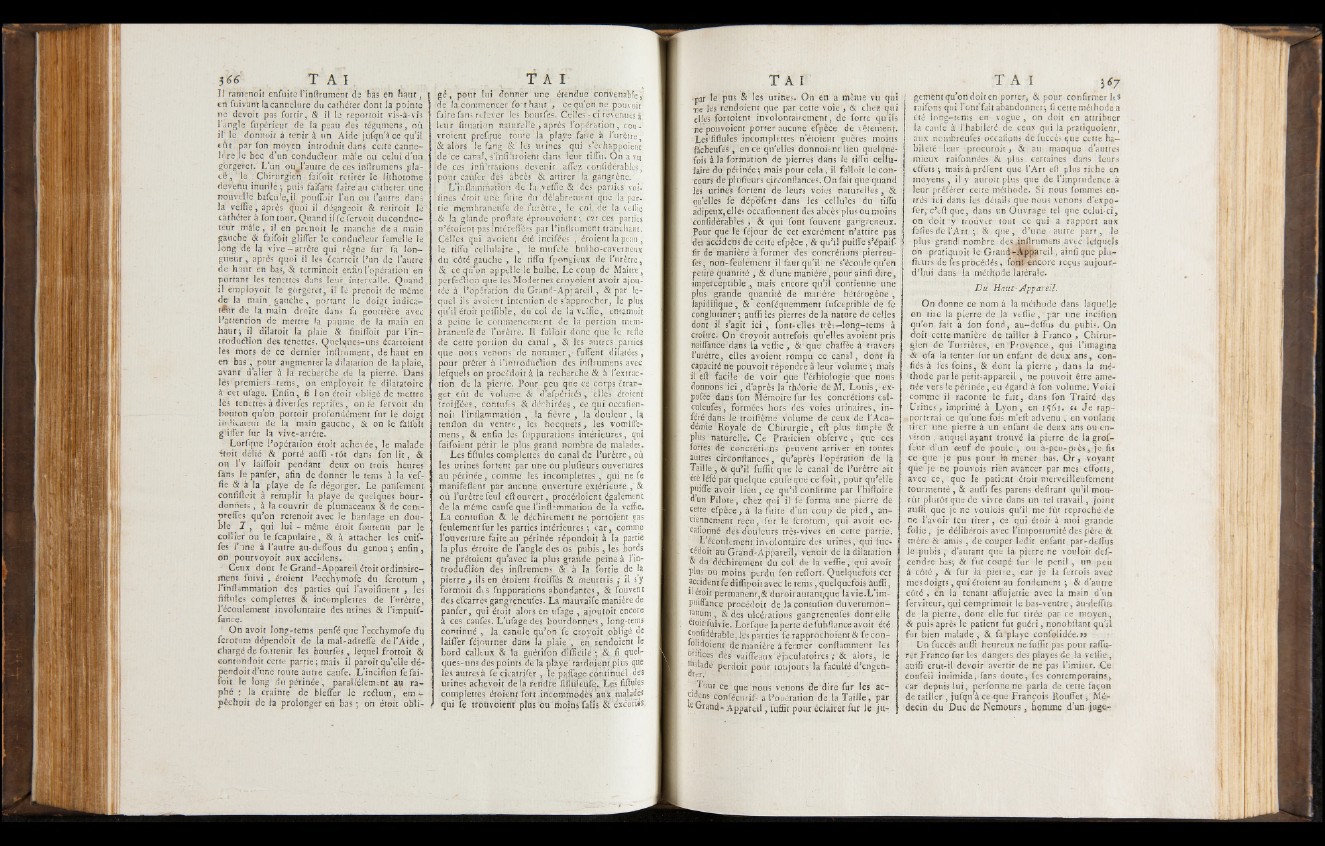 366 T A I
Il ramenoit ensuite l'instrument de bas en haut,
en suivant la cannelure du cathéter dont la pointe
ne devoit pas sortir, & il le reportoit vis-à-vis
l'angle supérieur de la peau des tégumens, où
il le donnoit à tenir à un Aide jusqu'à ce qu'il
eût par son moyen introduit dans cette canne-
lure le bec d'un conducteur mâle ou celui d'un
gorgeret. L'un ou l'autre de ces instrumens pla-
cé, le Chirurgien faisoit retirer le lithotome
devenu inutile; puis faisant faire au cathéter une
nouvelle bascule, il poussoit l'un ou l'autre dans
la vessie, après quoi il dégageoit & retiroit le
cathéter à son tour. Quand il se servoit du conduc-
teur mâle, il en prenoit le manche de a main
gauche & faisoit glisser le conducteur femelle le
long de la vive-arrête qui règne sur sa lon-
gueur, après quoi il les écartoit l'un de l'autre
de haut en bas, & terminoit enfin l'opération en
portant les tenettes dans leur intervalle. Quand
il employoit le gorgeret, il le prenoit de même
de la main gauche, portant le doigt indica-
teur de la main droite dans sa goutière avec
l'attention de mettre la paume de la main en
haut; il dilatoit la plaie & finissoit par l'in-
troduction des tenettes. Quelques-uns écartoient
les mors de ce dernier instrument, de haut en
en bas, pour augmenter la dilatation de la plaie,
avant d'aller à la recherche de la pierre. Dans
les premiers tems, on employoit le dilatatoire
à cet usage. Enfin, si l'on étoit obligé de mettre
les tenettes à diverses reprises, on se servoit du
bouton qu'on portoit profondément sur le doigt
indicateur de la main gauche, & on le faisoit
glisser sur la vive-arrête.
Lorsque l'opération étoit achevée, le malade
étoit délié & porté aussi-tôt dans son lit, &
on l'y laissoit pendant deux ou trois heures
sans le panser, afin de donner le tems à la ves-
sie & à la playe de se dégorger. Le pansement
consistoit à remplir la playe de quelques bour-
donnets, à la couvrir de plumaceaux & de com-
presses qu'on retenoit avec le bandage en dou-
ble T, qui lui-même étoit soutenu par le
collier ou le scapulaire, & à attacher les cuis-
ses l'une à l'autre au-dessous du genou; enfin,
on pourvoyoit aux accidens.
Ceux dont le Grand-Appareil étoit ordinaire-
ment suivi, étoient l'ecchymose du scrotum,
l'inflammation des parties qui l'avoisinent, les
fistules complettes & incomplettes de l'urètre,
l'écoulement involontaire des urines & l'impuis-
sance.
On avoit long-tems pensé que l'ecchymose du
scrotum dépendoit de la mal-adresse de l'Aide,
chargé de soutenir les bourses, lequel frottoit &
contondoit cette partie; mais il paroît qu'elle dé-
pendoit d'une toute autre cause. L'incision se fai-
soit le long du périnée, parallélement au ra-
phé: la crainte de blesser le rectum, em-
pêchoit de la prolonger en bas; on étoit obli-
T A I
gé, pour lui donner une étendue convenable,
de la commencer fort haut, ce qu'on ne pouvoit
faire sans relever les bourses. Celles-ci revenues à
leur situation naturelle, après l'opération, cou-
vroient presque toute la playe faite à l'urètre,
& alors le sang & les urines qui s'échappoient
de ce canal, s'infiltroient dans leur tissu. On a vu
de ces infiltrations devenir assez considérables,
pour causer des abcès & attirer la gangrène.
L'inflammation de la vessie & des parties voi-
sines étoit une suite du délabrement que la par-
tie membraneuse de l'urètre, le col de la vessie
& la glande prostate éprouvoient; car ces parties
n'étoient pas intéressées par l'instrument tranchant.
Celles qui avoient été incisées, étoient la peau,
le tissu cellulaire, le muscle bulbo-caverneux
du côté gauche, le tissu spongieux de l'urètre,
& ce qu'on appelle le bulbe. Le coup de Maître,
perfection que les Modernes croyoient avoir ajou-
tée à l'opération du Grand-Appareil, & par le-
quel ils avoient intention de s'approcher, le plus
qu'il étoit possible, du col de la vessie, entamoit
à peine le commencement de la portion mem-
braneuse de l'urètre. Il falloit donc que le reste
de cette portion du canal, & les autres parties
que nous venons de nommer, fussent dilatées,
pour prêter à l'introduction des instrumens avec
lesquels on procédoit à la recherche & à l'extrac-
tion de la pierre. Pour peu que ce corps étran-
ger eût de volume & d'aspérités, elles étoient
froissées, contuses & déchirées, ce qui occasion-
noit l'inflammation, la fièvre, la douleur, la
tension du ventre, les hocquets, les vomisse-
mens, & enfin les suppurations intérieures, qui
faisoient périr le plus grand nombre de malades.
Les fistules complettes du canal de l'urètre, où
les urines sortent par une ou plusieurs ouvertures
au périnée, comme les incomplettes, qui ne se
manifestent par aucune ouverture extérieure, &
où l'urètre seul est ouvert, procédoient également
de la même cause que l'inflammation de la vessie.
La contusion & le déchirement ne portoient pas
seulement sur les parties intérieures; car, comme
l'ouverture faite au périnée répondoit à la partie
la plus étroite de l'angle des os pubis, les bords
ne prêtoient qu'avec la plus grande peine à l'in-
troduction des instrumens & à la sortie de la
pierre, ils en étoient froissés & meurtris; il s'y
formoit des suppurations abondantes, & souvent
des escarres gangreneuses. La mauvaise manière de
panser, qui étoit alors en usage, ajoutoit encore
à ces causes. L'usage des bourdonnets, long-tems
continué, la canule qu'on se croyoit obligé de
laisser séjourner dans la plaie, en rendoient le
bord calleux & la guérison difficile; & si quel-
ques-uns des points de la playe tardoient plus que
les autres à se cicatriser, le passage continuel des
urines achevoit de la rendre fistuleuse. Les fistules
complettes étoient fort incommodes aux malades
qui se trouvoient plus ou moins salis & excoriés
T A I
par le pus & les urines. On en a même vu qui
ne les rendoient que par cette voie, & chez qui
elles sortoient involontairement, de sorte qu'ils
ne pouvoient porter aucune espèce de vêtement.
Les fistules incomplettes n'étoient guères moins
fâcheuses, en ce qu'elles donnoient lieu quelque-
fois à la formation de pierres dans le tissu cellu-
laire du périnée; mais pour cela, il falloit le con-
cours de plusieurs circonstances. On sait que quand
les urines sortent de leurs voies naturelles, &
qu'elles se déposent dans les cellules du tissu
adipeux, elles occasionnent des abcès plus ou moins
considérables, & qui sont souvent gangreneux.
Pour que le séjour de cet excrément n'attire pas
des accidens de cette espèce, & qu'il puisse s'épaif-
sir de manière à former des concrétions pierreu-
ses, non-seulement il faut qu'il ne s'écoule qu'en
petite quantité, & d'une manière, pour ainsi dire,
imperceptible, mais encore qu'il contienne une
plus grande quantité de matière hétérogène,
lapidifique, & conséquemment susceptible de se
conglutiner; aussi les pierres de la nature de celles
dont il s'agit ici, sont-elles très-long-tems à
croître. On croyoit autrefois qu'elles avoient pris
naissance dans la vessie, & que chassée à travers
l'urètre, elles avoient rompu ce canal, dont la
capacité ne pouvoit répondre à leur volume; mais
il est facile de voir que l'éthiologie que nous
donnons ici, d'après la théorie de M. Louis, ex-
posée dans son Mémoire sur les concrétions cal-
culeuses, formées hors des voies urinaires, in-
séré dans le troisième volume de ceux de l'Aca-
démie Royale de Chirurgie, est plus simple &
plus naturelle. Ce Praticien observe, que ces
sortes de concrétions peuvent arriver en toutes
autres circonstances, qu'après l'opération de la
Taille, & qu'il suffit que le canal de l'urètre ait
été lésé par quelque cause que ce soit, pour qu'elle
puisse avoir lieu, ce qu'il confirme par l'histoire
d'un Pilote, chez qui il se forma une pierre de
cette espèce, à la suite d'un coup de pied, an-
ciennement reçu, sur le scrotum, qui avoit oc-
casionné des douleurs très-vives en cette partie.
L'écoulement involontaire des urines, qui suc-
cédoit au Grand-Appareil, venoit de la dilatation
& du déchirement du col de la vessie, qui avoit
plus ou moins perdu son ressort. Quelquefois cet
accident se dissipoit avec le tems, quelquefois aussi,
il étoit permanent, & duroit autant que la vie. L'im-
puissance procédoit de la contusion du verumon-
tanum, & des ulcérations gangreneuses dont elle
étoit suivie. Lorsque la perte de substance avoit été
considérable, les parties se rapprochoient & se con-
solidoient de manière à fermer constamment les
orifices des vaisseaux éjaculatoires; & alors, le
malade perdoit pour toujours la faculté d'engen-
drer.
Tout ce que nous venons de dire sur les ac-
cidens consécutifs à l'opération de la Taille, par
le Grand-Appareil, suffit pour éclairer sur le ju-
T A I 367
gement qu'on doit en porter, & pour confirmer les
raisons qui l'ont fait abandonner; si cette méthode a
été long-tems en vogue, on doit en attribuer
la cause à l'habileté de ceux qui la pratiquoient,
aux nombreuses occasions de succès que cette ha-
bileté leur procuroit, & au manque d'autres
mieux raisonnées & plus certaines dans leurs
effets; mais à présent que l'Art est plus riche en
moyens, il y auroit plus que de l'imprudence à
leur préférer cette méthode. Si nous sommes en-
trés ici dans les détails que nous venons d'expo-
ser, c'est que, dans un Ouvrage tel que celui-ci,
on doit y trouver tout ce qui a rapport aux
fastes de l'Art; & que, d'une autre part, le
plus grand nombre des instrumens avec lesquels
on pratiquoit le Grand-Appareil, ainsi que plu-
sieurs de ses procédés, sont encore reçus aujour-
d'hui dans la méthode latérale.
Du Haut-Appareil.
On donne ce nom à la méthode dans laquelle
on tire la pierre de la vessie, par une incision
qu'on fait à son fond, au-dessus du pubis. On
doit cette manière de tailler à Franco, Chirur-
gien de Turrières, en Provence, qui l'imagina
& osa la tenter sur un enfant de deux ans, con-
fiés à ses soins, & dont la pierre, dans la mé-
thode par le petit-appareil, ne pouvoit être ame-
née vers le périnée, eu égard à son volume. Voici
comme il raconte le fait, dans son Traité des
Urines, imprimé à Lyon, en 1561. « Je rap-
porterai ce qu'une fois m'est advenu, en voulant
tirer une pierre à un enfant de deux ans ou en-
viron, auquel ayant trouvé la pierre de la gros-
seur d'un œuf de poule, ou à-peu-près, je fis
ce que je pus pour la mener bas. Or, voyant
que je ne pouvois rien avancer par mes efforts,
avec ce, que le patient étoit merveilleusement
tourmenté, & aussi ses parens desirant qu'il mou-
rût plutôt que de vivre dans un tel travail, joint
aussi que je ne voulois qu'il me fût reproché de
ne l'avoir sçu tirer, ce qui étoit à moi grande
folie, je délibérois avec l'importunité des père &
mère & amis, de couper ledit enfant par-dessus
le pubis, d'autant que la pierre ne vouloit des-
cendre bas, & fut coupé sur le penil, un peu
à côté, & sur la pierre, car je la serrois avec
mes doigts, qui étoient au fondement; & d'autre
côté, en la tenant assujettie avec la main d'un
serviteur, qui comprimoit le bas-ventre, au-dessus
de la pierre, dont elle fut tirée par ce moyen,
& puis après le patient fut guéri, nonobstant qu'il
fut bien malade, & sa playe consolidée.»
Un succès aussi heureux ne suffit pas pour rassu-
rer Franco sur les dangers des playes de la vessie,
aussi crut-il devoir avertir de ne pas l'imiter. Ce
conseil intimida, sans doute, ses contemporains,
car depuis lui, personne ne parla de cette façon
de tailler, jusqu'à ce que François Rousset, Mé-
decin du Duc de Nemours, homme d'un juge-